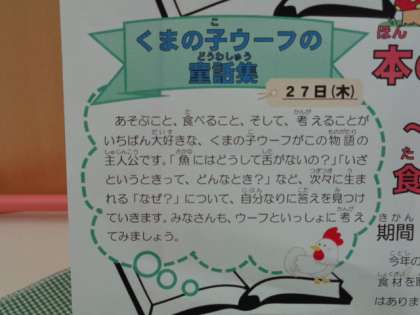 くまの子ウーフの
童話集
27日(木)
あそぶこと、食べること、そして、考えることが
いちばん大好きな、くまの子ウーフがこの物語の
主人公です。「魚にはどうして舌がないの?」「いざ
というときって、どんなとき?」など、次々に生ま
れる「なぜ?」について、自分なりに答えを見つけ
ていきます。みなさんも、ウーフといっしょに考え
てみましょう。
本の
~
食
期間
今年の
食材を
はありま